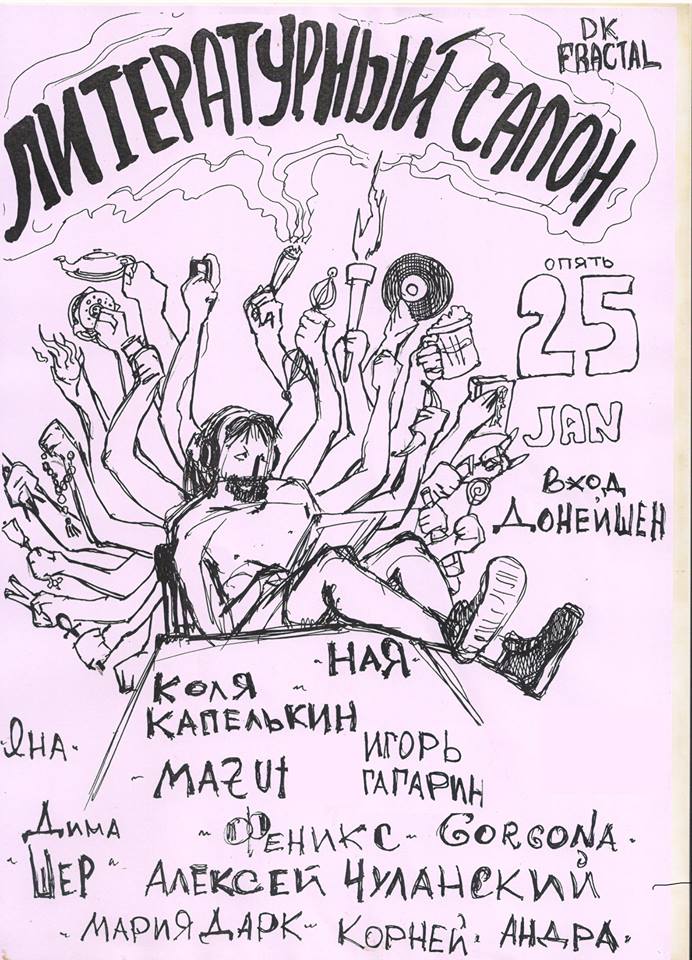 ЛИТЕРАТУРНЫЙ САЛОН
DK
FRACTAL
ОПЯТЬ
25
JAN
ВХОД
ДОНЕЙШЕН
-НАЯ-
КОЛЯ -
КАПЕЛЬКИН
ЯНА-
-MAZUt
ИГОРЬ
ГАГАРИН
ДИМА
"ШЕР"
-ФЕНИКС-
GORGONA-
АЛЕКСЕЙ ЧУЛАНСКИЙ
-МАРИЯ ДАРК-
КОРНЕЙ-
АНДРА-